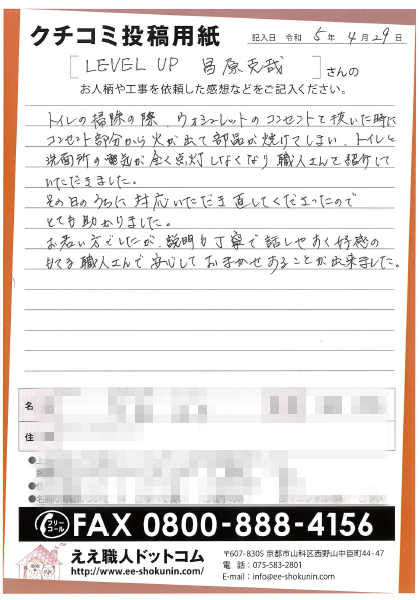 クチコミ投稿用紙
記入日 令和 5年 4月 29日
[LEVEL UP 昌原克哉]さんの
お人柄や工事を依頼した感想などをご記入ください。
トイレの掃除の際、ウォシュレットのコンセントを抜いた時に
コンセント部分から火が出て部品が焼けてしまい、トイレと
洗面所の電気が全く点灯しなくなり職人さんを紹介して
いただきました。
その日のうちに対応いただき直してくださったので
とても助かりました。
お若い方でしたが、説明も丁寧で話しやすく好感の
もてる職人さんで安心しておまかせすることが出来ました。
名
住
フリーコール
FAX 0800-888-4156
ええ職人ドットコム
http://www.ee-shokunin.com/
〒607-8305 京都市山科区西野山中臣町44-47
電話 : 075-583-2801
E-mail : info@ee-shokunin.com